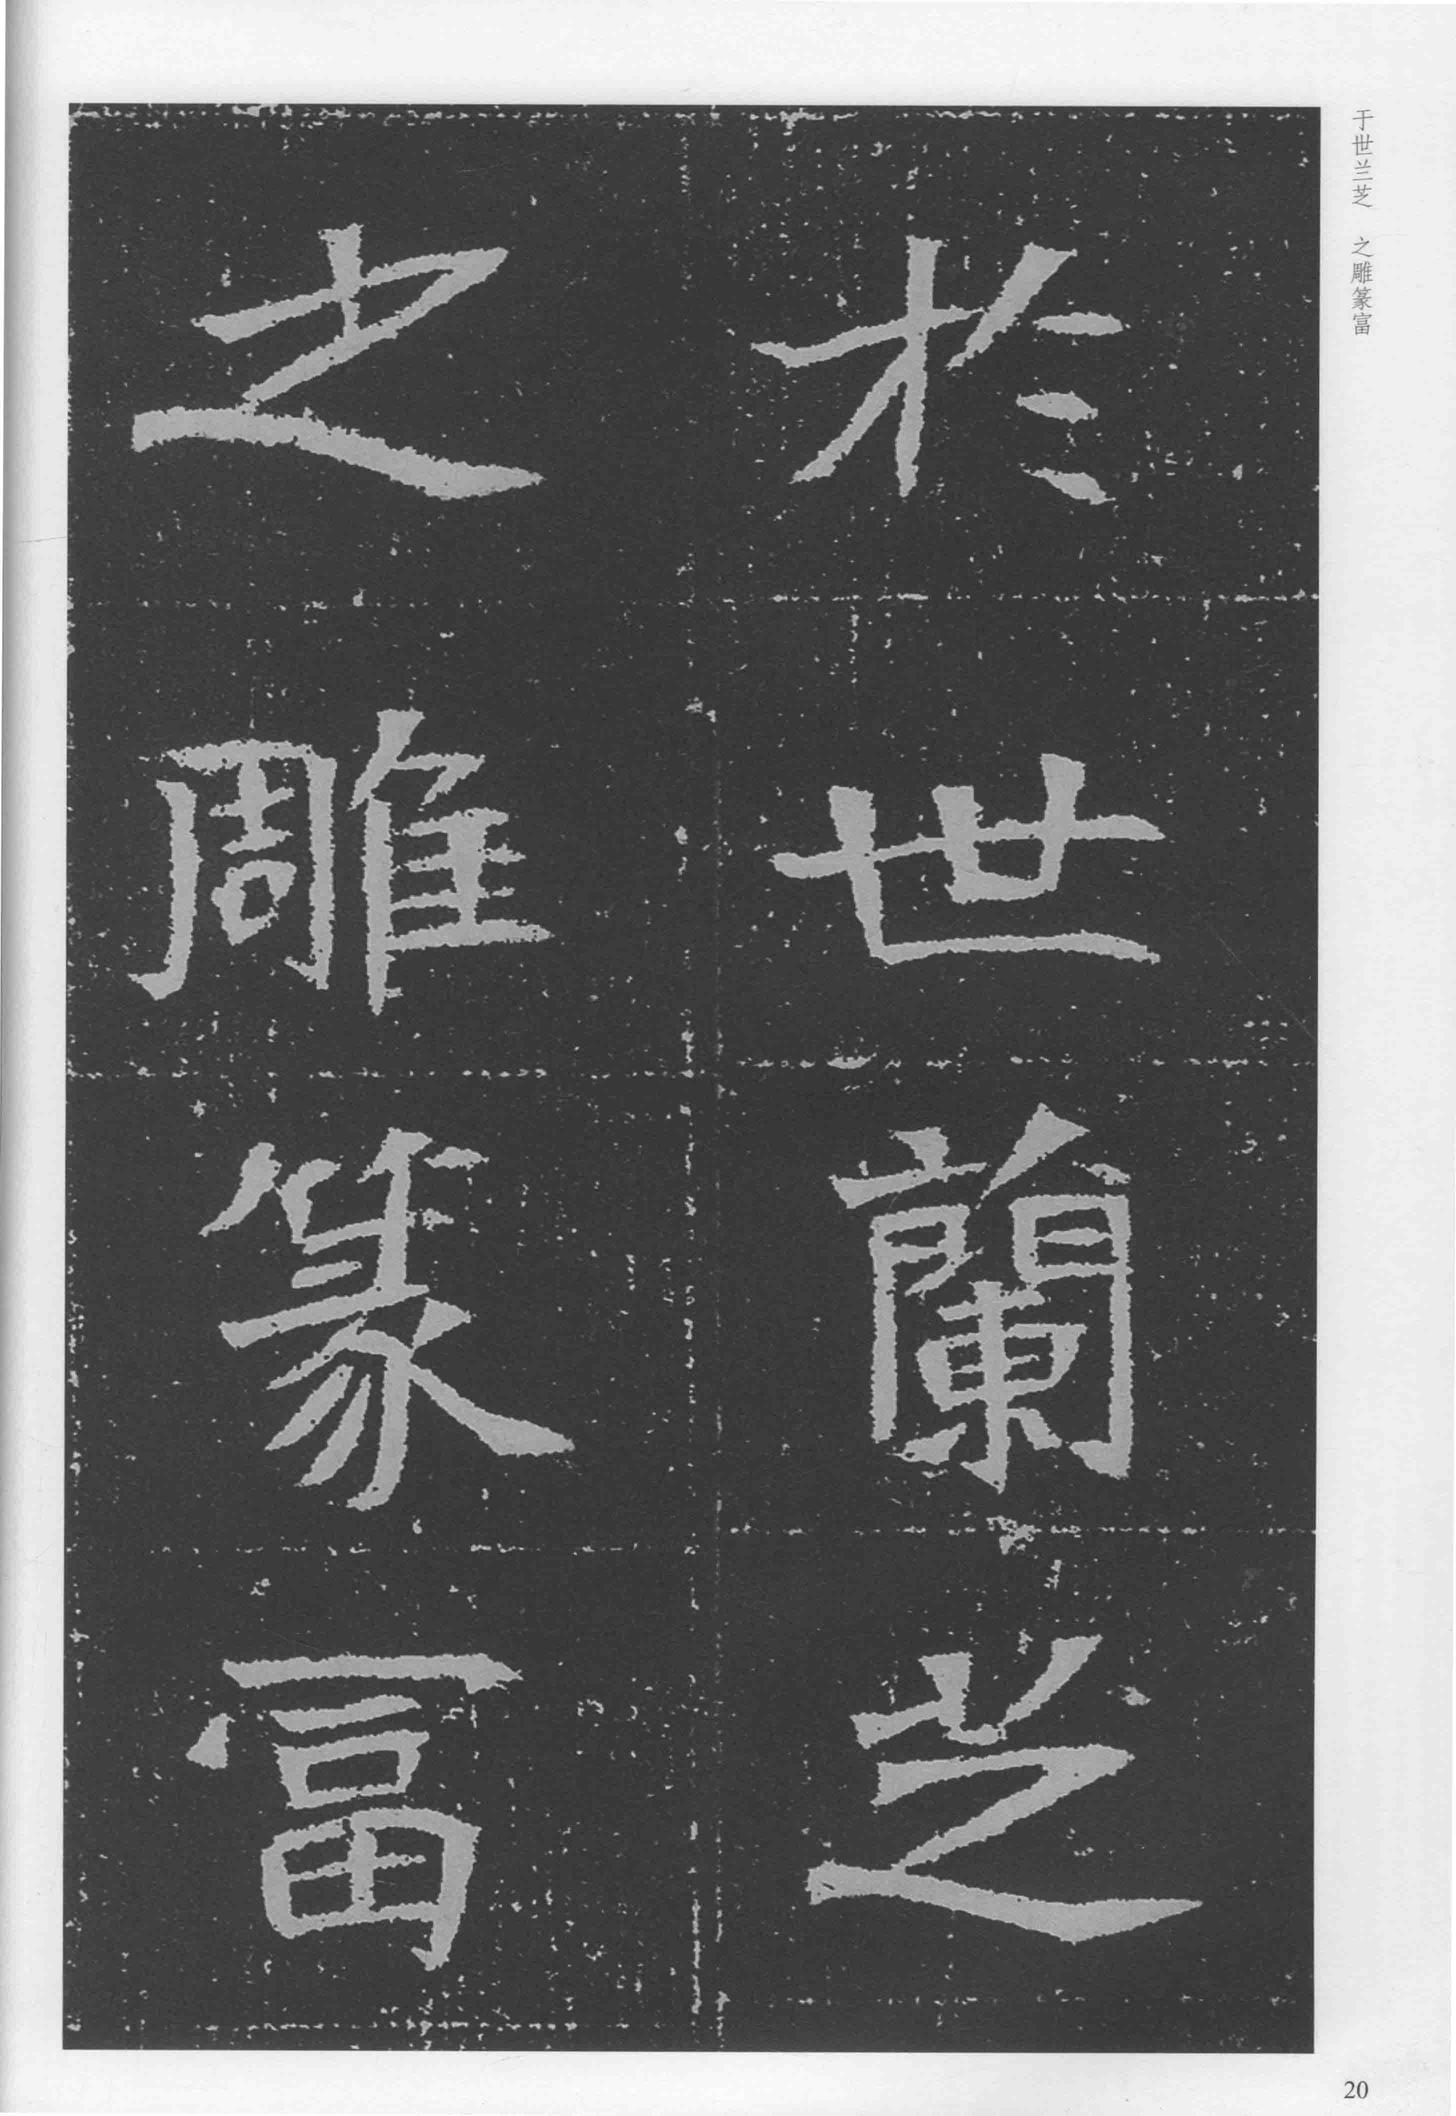 于世兰芝 之雕篆富
於世蘭芝
之雕篆富
20